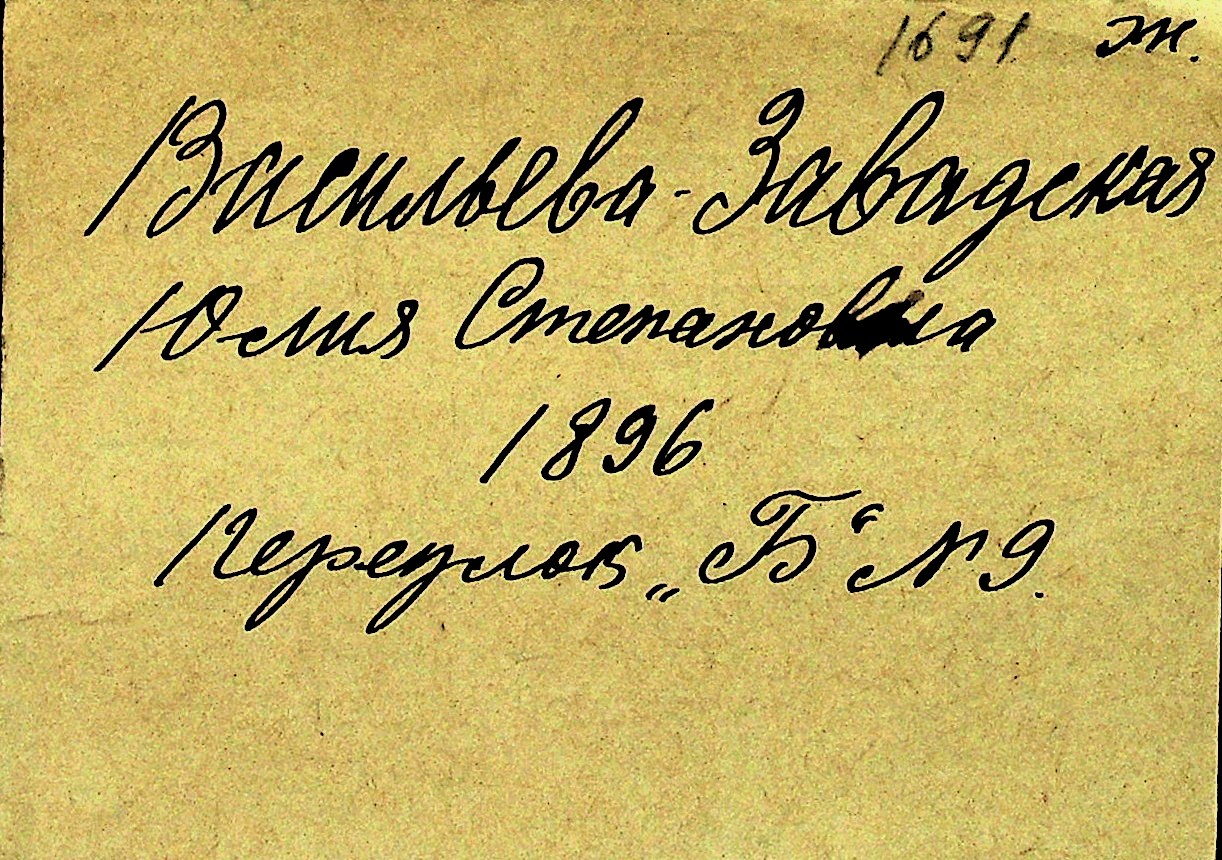 1691 ж.
Васильева-Завадская
Юлия Степановна
1896
Переулок „Б“ № 9.